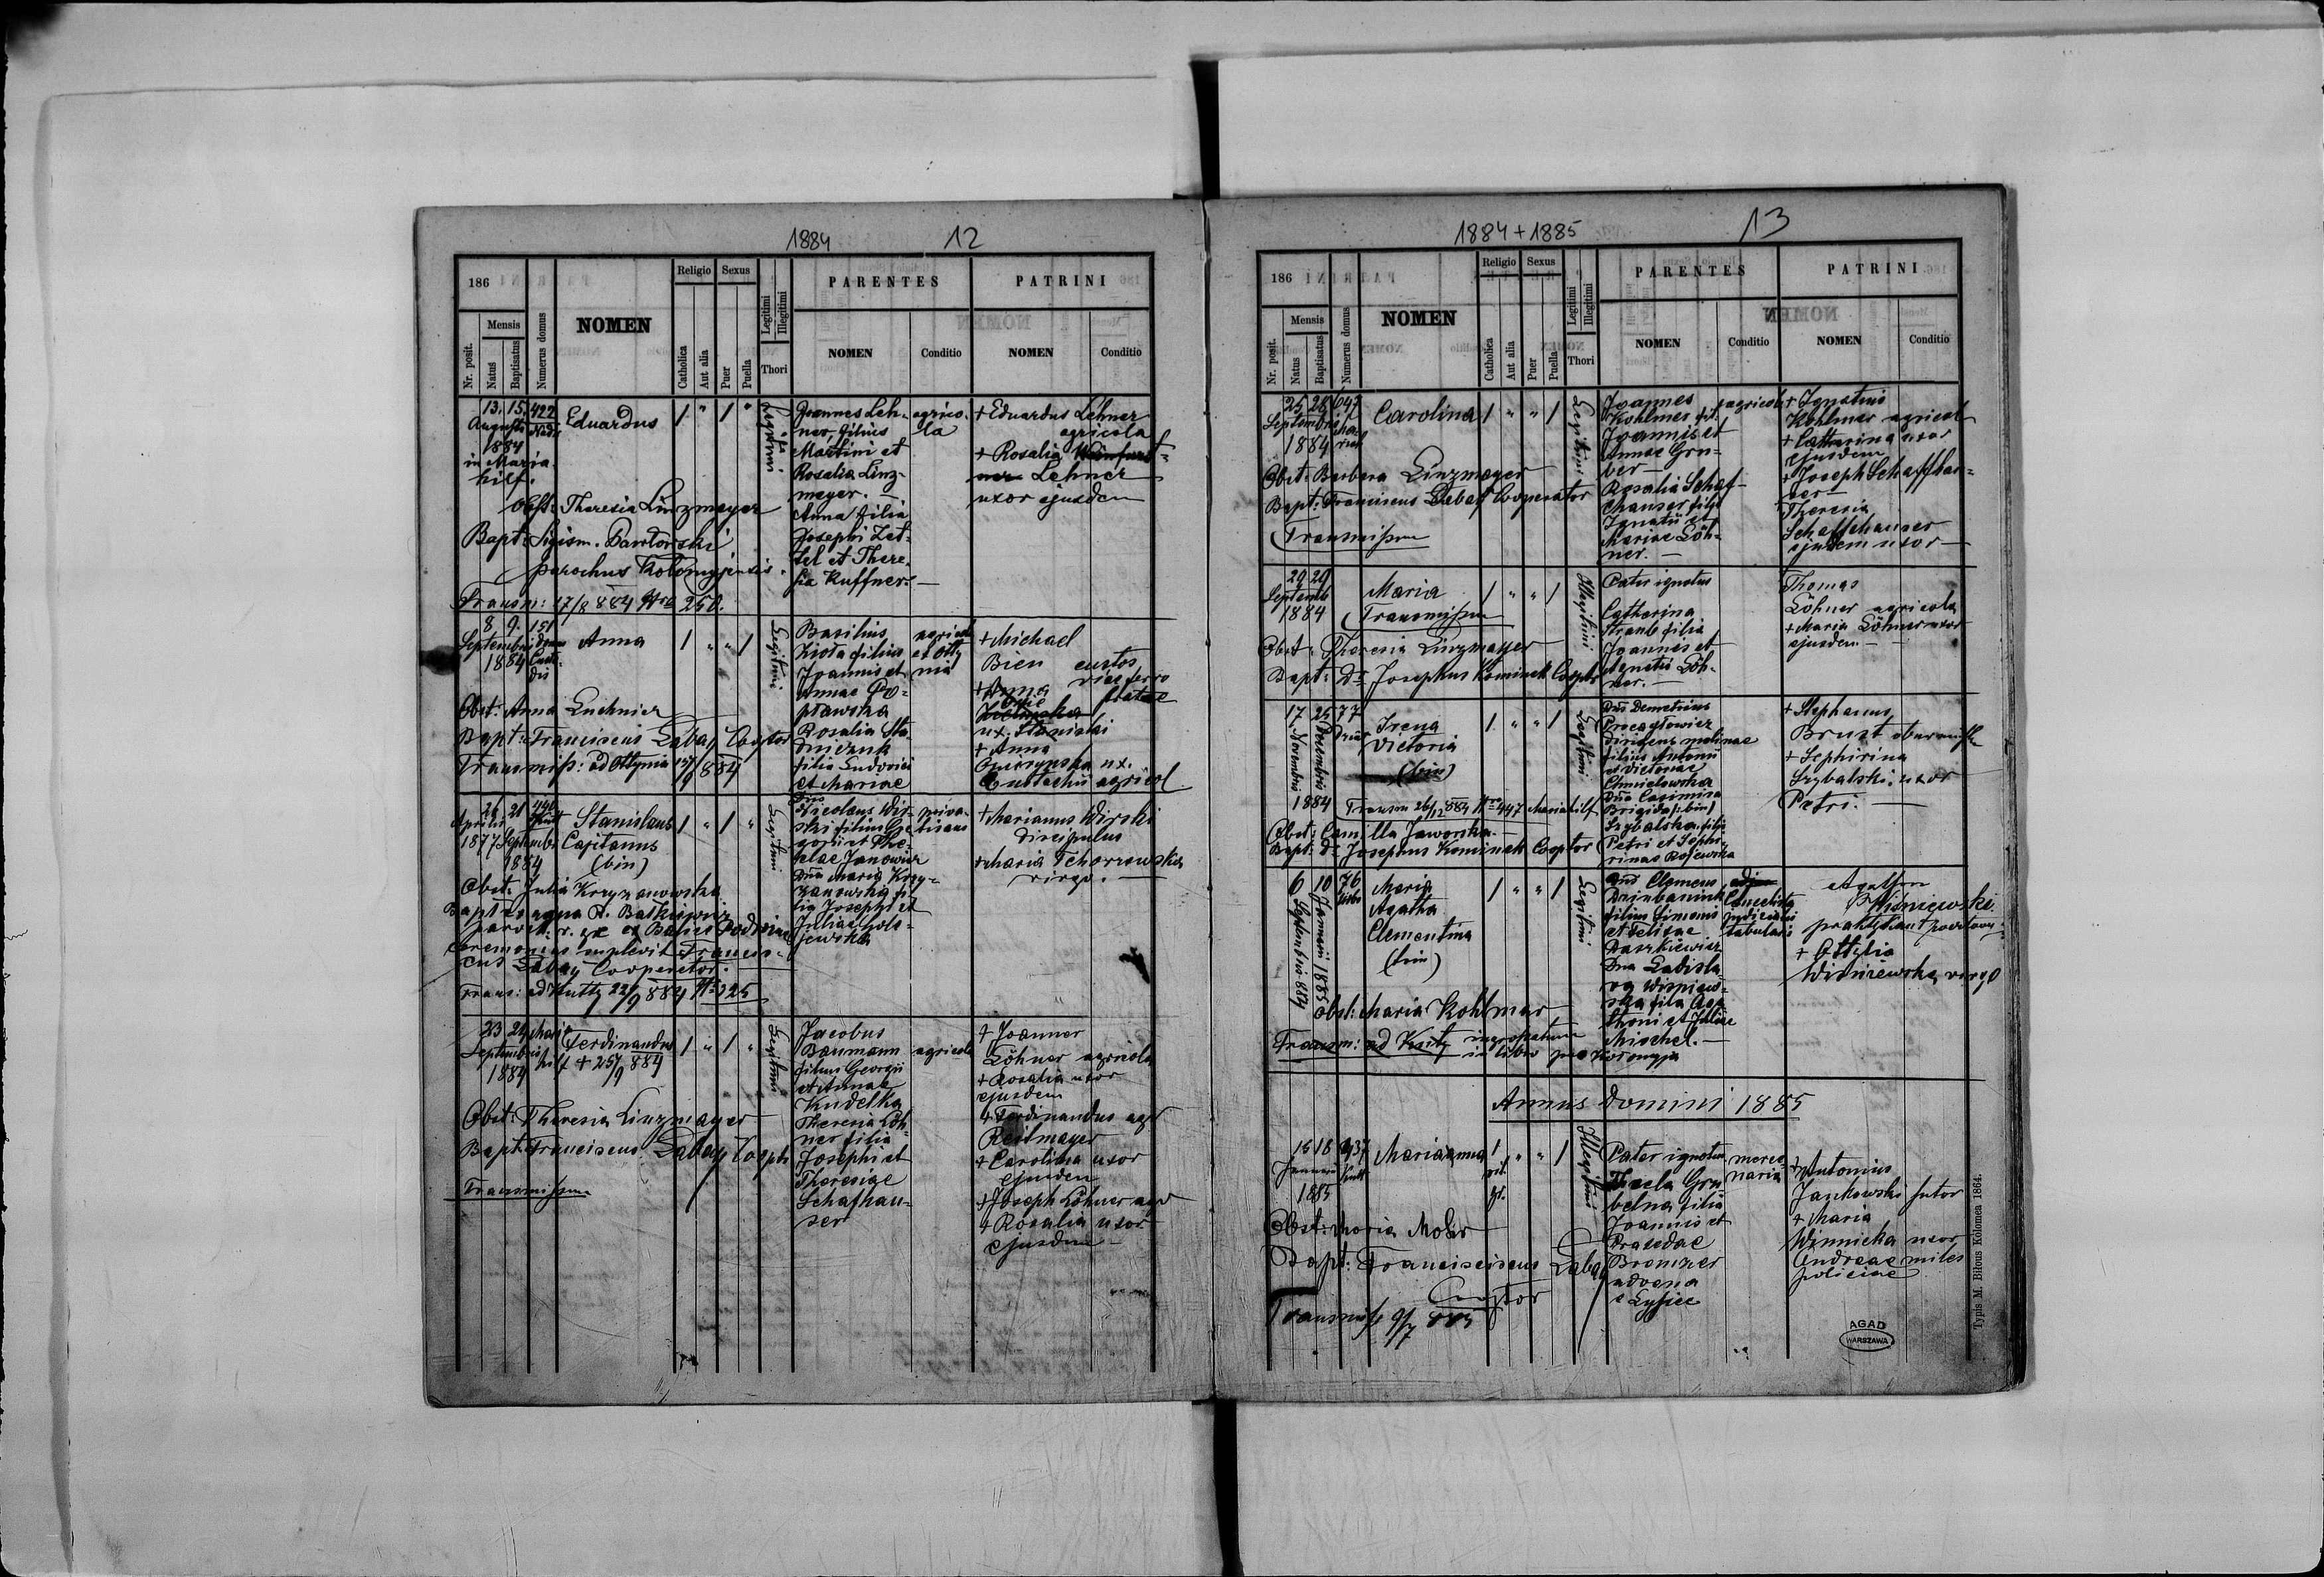 1884 12
186
Religio Sexus
Legitimi
Illegitimi
PARENTES
PATRINI
Mensis
NOMEN
Nr. posit.
Natus
Baptisatus
Numerus domus
Catholica
Aut alia
Puer
Puella
Thori
NOMEN
Conditio
NOMEN
Conditio
13. 15. 422
Augusti
1884
in Maria-
hilf.
Eduardus 1 " 1 "
Legitimi
Joannes Leh-
ner filius
Martini et
Rosalia Linz-
meyer. —
Anna filia
Josephi Zet-
tel et There-
sia Kuffner —
agrico-
la
+ Eduardus Lehner
agricola
+ Rosalia
Lehner
uxor ejusdem
Obst: Theresia Linzmayer
Bapt: Sigism. Pawłowski
parochus Kolomyjensis.
Transm: 17/8 884 Nro 250.
8 9. 151
Septembris
1884
Anna 1 " " 1
Legitimi
Basilius
filius
Joannis et
Annae
Rosalia
filia Ludovici
et Mariae
agricola
+ Michael
Bien custos
viae ferro
stratae
+ Anna
ux. Stanislai
+ Anna
ux.
Eustachii agricol
Obst: Anna Luchnier
Bapt: Franciscus Labay Cooptor
Transmiss: ad Ottynia 15/9 884
26 21 490
Aprilis
1877 Septembr
1884
Stanislaus
Cajetanus
(bin)
1 " 1 "
Legitimi
Nicolaus Wir-
ski filius Gre-
gorii et The-
clae Janowicz
Dna Maria Krzy-
zanowska fi-
lia Josephi et
Juliae
priva-
tisans
+ Marianus Wirski
discipulus
+ Maria
virgo. —
Obst: Julia Krzyzanowska
Bapt: ex aqua
ceremonias supplevit Francis-
cus Labay Cooperator.
Trans: ad Kutty 22/9 884 Nro 325
23 24 Maria
Septembris hilf
1884
Ferdinandus
+ 25/9 884
1 " 1 "
Legitimi
Jacobus
Baumann
filius Georgii
et Annae
Kudelka
Theresia Löh-
ner filia
Josephi et
Theresiae
Schafhau-
ser
agricola
+ Joannes
Löhner agricola
+ Rosalia uxor
ejusdem
+ Ferdinandus agr
Reitmayer
+ Carolina uxor
ejusdem
+ Joseph Löhner agr
+ Rosalia uxor
ejusdem —
Obst: Theresia Linzmayer
Bapt: Franciscus Labay Cooptr
Transmissum
1884 + 1885 13
186
Religio Sexus
Legitimi
Illegitimi
PARENTES
PATRINI
Mensis
NOMEN
Nr. posit.
Natus
Baptisatus
Numerus domus
Catholica
Aut alia
Puer
Puella
Thori
NOMEN
Conditio
NOMEN
Conditio
25 28 642
Septembris
1884
Carolina 1 " " 1
Legitimi
Joannes
Kohlmer fil.
Joannis et
Annae Gru-
ber —
Rosalia Schaf-
hauser filia
Ignatii et
Mariae Löh-
ner. —
agricola
+ Ignatius
Kohlmer agricol
+ Catharina uxor
ejusdem
+ Joseph Schaffhau-
ser
Theresia
Schaffhauser
ejusdem uxor —
Obst: Barbara Linzmayer
Bapt: Franciscus Labay Cooperator
Transmissum
29 29
Septemb
1884
Maria 1 " " 1
Transmissum
Illegitimi
Pater ignotus
Catharina
Straub filia
Joannes et
Agnetis Löh-
ner. —
Thomas
Löhner agricola
+ Maria Löhner uxor
ejusdem —
Obst: Theresia Linzmayer
Bapt: Ds Josephus Kominek Cooptr
17 25 77
Novembris
Decembris
1884
Irena
Victoria
(bin)
1 " " 1
Legitimi
Dns Demetrius
dirigens molinae
filius Antonii
et Victoriae
Chmielowska
Dna Casimira
Brigida (bin)
Szybalska filia
Petri et Sephi-
rinae
+ Stephanus
Brust
+ Sephirina
Szybalski uxor
Petri. —
Transm 26/12 884 Nro 447 Mariahilf
Obst: Camilla Jaworska —
Bapt: Ds Josephus Kominek Cooptor
6 10 76
Septembris 884
Januarii 1885
Maria
Agatha
Clementina
(trin)
1 " " 1
Legitimi
Dns Clemens
filius Simonis
et Felicae
Daszkiewicz
Dna Ladisla-
va
filia Aga-
thoni et Juliae
Michel. —
tabularis
Agathon
Wiśniewski
praktykant
+ Ottylia
Wiśniewska virgo
Obst: Maria Kohlmar
Transm: ad Kuty
in libro pro Kolomyja
Annus Domini 1885
15 18 937
Januarii
1885
Marianna 1 " " 1
rit.
gr.
Illegitimi
Pater ignotus
Thecla Gru-
belna filia
Joannis et
Praxedae
Bronizer
advena
e Lysiec
merce-
naria
+ Antonius
Jankowski sutor
+ Maria
Winnicka uxor
Andreae miles
policiae
Obst: Maria Moler
Bapt: Franciscus Labay
Cooptor
Transmiss 9/7 885
AGAD
WARSZAWA
Typis M. Bilous Kolomea 1864.